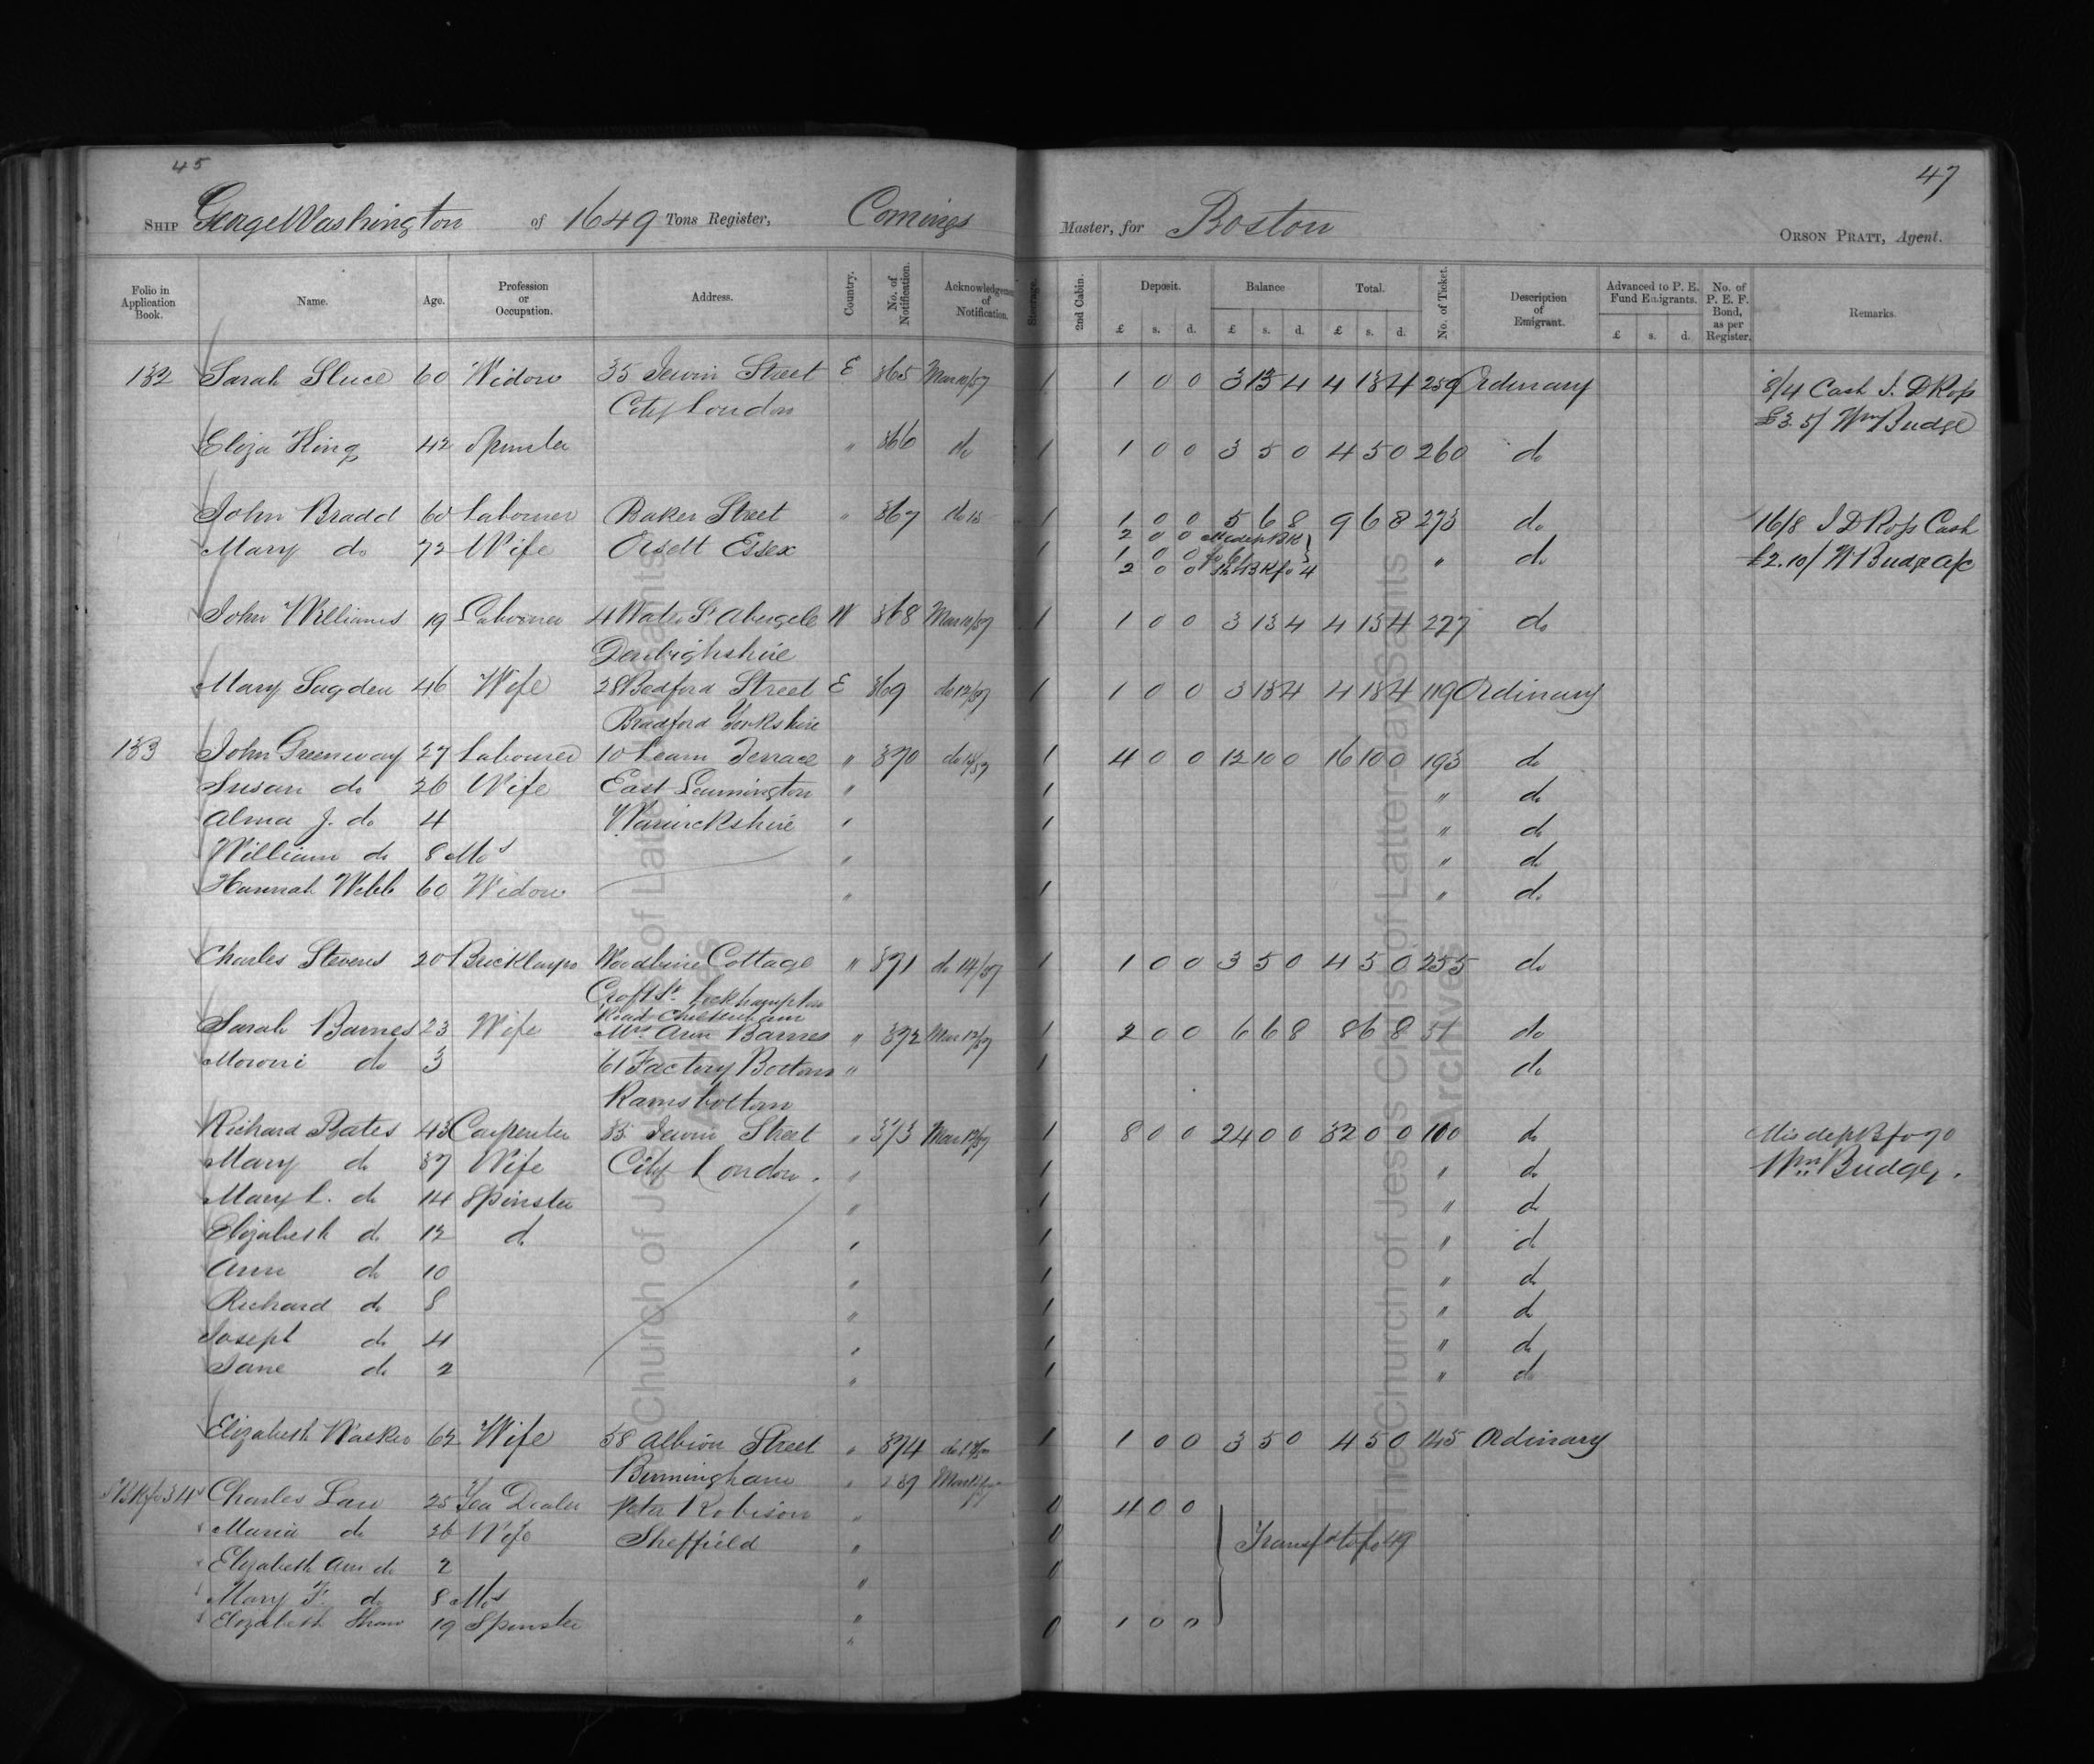 45
47
SHIP George Washington of 1649 Tons Register, Comings Master, for Boston ORSON PRATT, Agent.
Folio in Application Book. Name. Age. Profession or Occupation. Address. Country. No. of Notification. Acknowledgement of Notification. Steerage. 2nd Cabin. Deposit. Balance Total. No. of Ticket. Description of Emigrant. Advanced to P. E. Fund Emigrants. No. of P. E. F. Bond, as per Register. Remarks.
£ s. d. £ s. d. £ s. d. £ s. d.
132 Sarah Sluce 60 Widow 35 Jewin Street E 365 Mar 10/57 1 1 0 0 3 13 4 4 13 4 259 Ordinary 8/4 Cash J. D Ross
City London £3.5/ Wm Budge
Eliza King 42 Spinster " 366 do 1 1 0 0 3 5 0 4 5 0 260 do
John Bradd 60 Labourer Baker Street " 367 do 1 1 0 0 5 6 8 9 6 8 273 do 16/8 J D Ross Cash
2 0 0
Mary do 72 Wife Orsett Essex 1 1 0 0 " do £2.10/ W Budge a/c
2 0 0
John Williams 19 Labourer 4 Water St Abergele W 368 Mar 10/57 1 1 0 0 3 13 4 4 13 4 277 do
Denbighshire
Mary Sugden 46 Wife 28 Bedford Street E 369 do 12/57 1 1 0 0 3 13 4 4 13 4 119 Ordinary
Bradford Yorkshire
133 John Greenway 27 Labourer 10 Leam Terrace " 370 do 14/57 1 4 0 0 12 10 0 16 10 0 193 do
Susan do 26 Wife East Leamington " 1 " do
Alma J. do 4 Warwickshire " 1 " do
William do 8 Mos " " do
Hannah Webb 60 Widow " 1 " do
Charles Stevens 20 Bricklayer Woodbine Cottage " 371 do 14/57 1 1 0 0 3 5 0 4 5 0 255 do
Croft St. Leckhampton
Road Cheltenham
Sarah Barnes 23 Wife Mrs Ann Barnes " 372 Mar 12/57 1 2 0 0 6 6 8 8 6 8 51 do
Moroni do 3 61 Factory Bottom " 1 do
Ramsbottom
Richard Bates 43 Carpenter 35 Jewin Street " 373 Mar 12/57 1 8 0 0 24 0 0 32 0 0 100 do
Mary do 37 Wife City London. " 1 " do Wm Budge.
Mary L. do 14 Spinster " 1 " do
Elizabeth do 12 do " 1 " do
Ann do 10 " 1 " do
Richard do 8 " 1 " do
Joseph do 4 " 1 " do
Jane do 2 " 1 " do
Elizabeth Walker 62 Wife 58 Albion Street " 374 1 1 0 0 3 5 0 4 5 0 145 Ordinary
Birmingham
Charles Law 25 Tea Dealer Peter Robison " 0 4 0 0
Maria do 26 Wife Sheffield " 0 Transfd to fo 49
Elizabeth Ann do 2 " 0
Mary F. do 8 Mos "
Elizabeth Shaw 19 Spinster " 0 1 0 0
The Church of Jesus Christ of Latter-day Saints
Archives